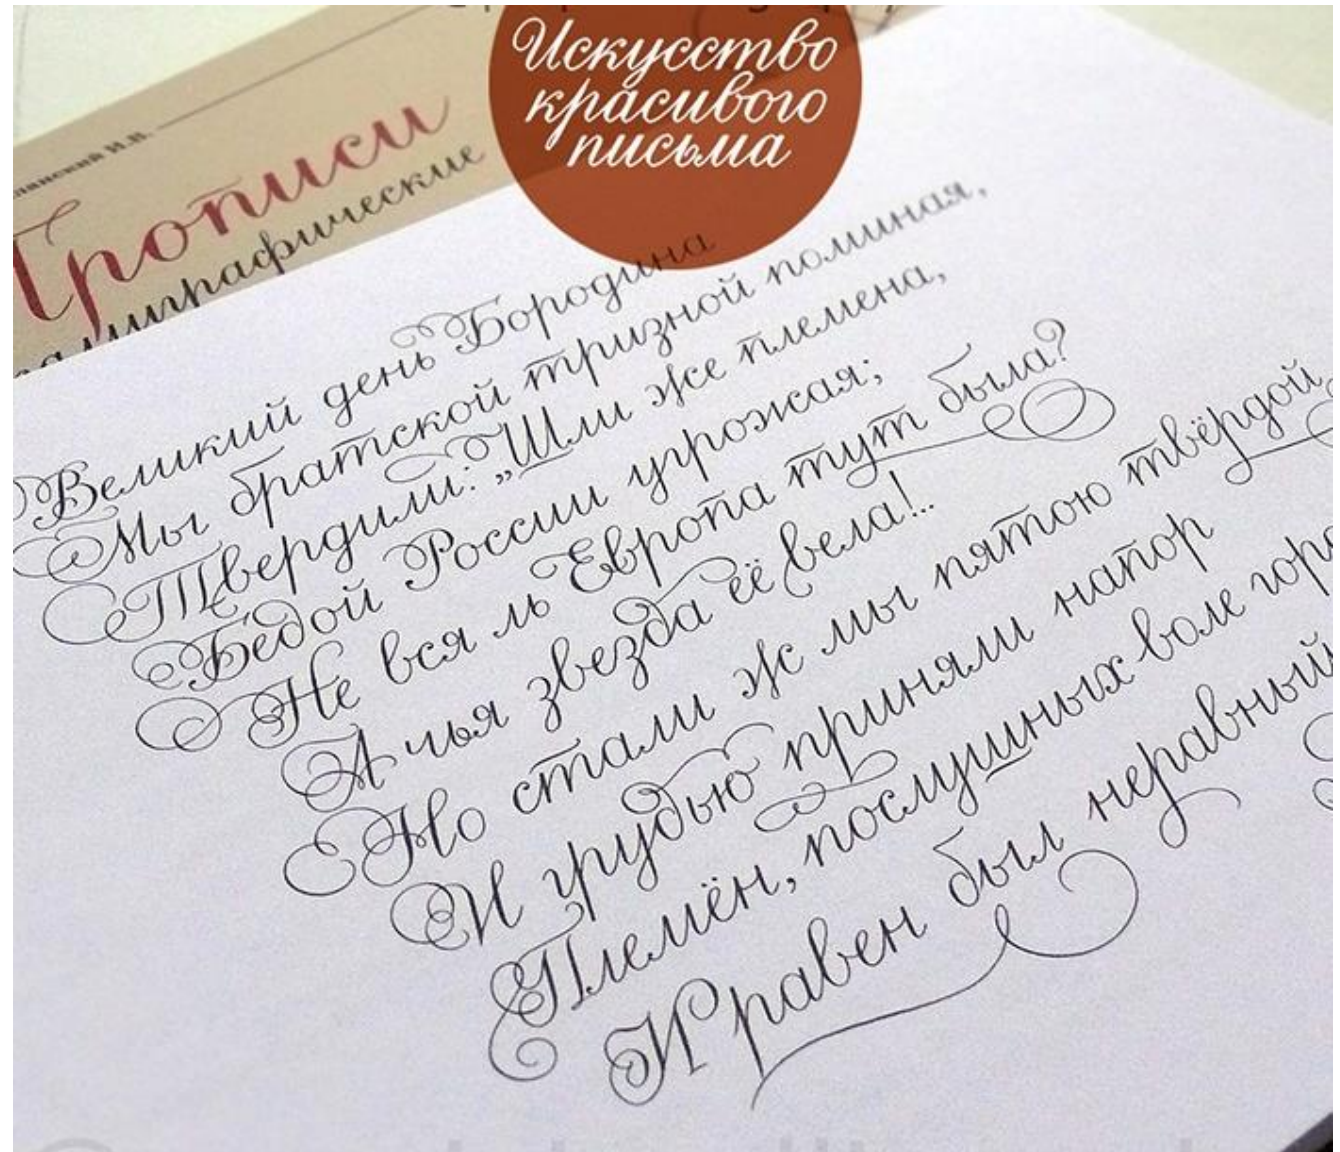 Искусство
красивого
письма
Прописи
каллиграфические
Великий день Бородина
Мы братской тризной поминая,
Твердили: „Шли же племена,
Бедой России угрожая;
Не вся ль Европа тут была?
А чья звезда её вела!..
Но стали ж мы пятою твёрдой
И грудью приняли напор
Племён, послушных воле
И равен был неравный